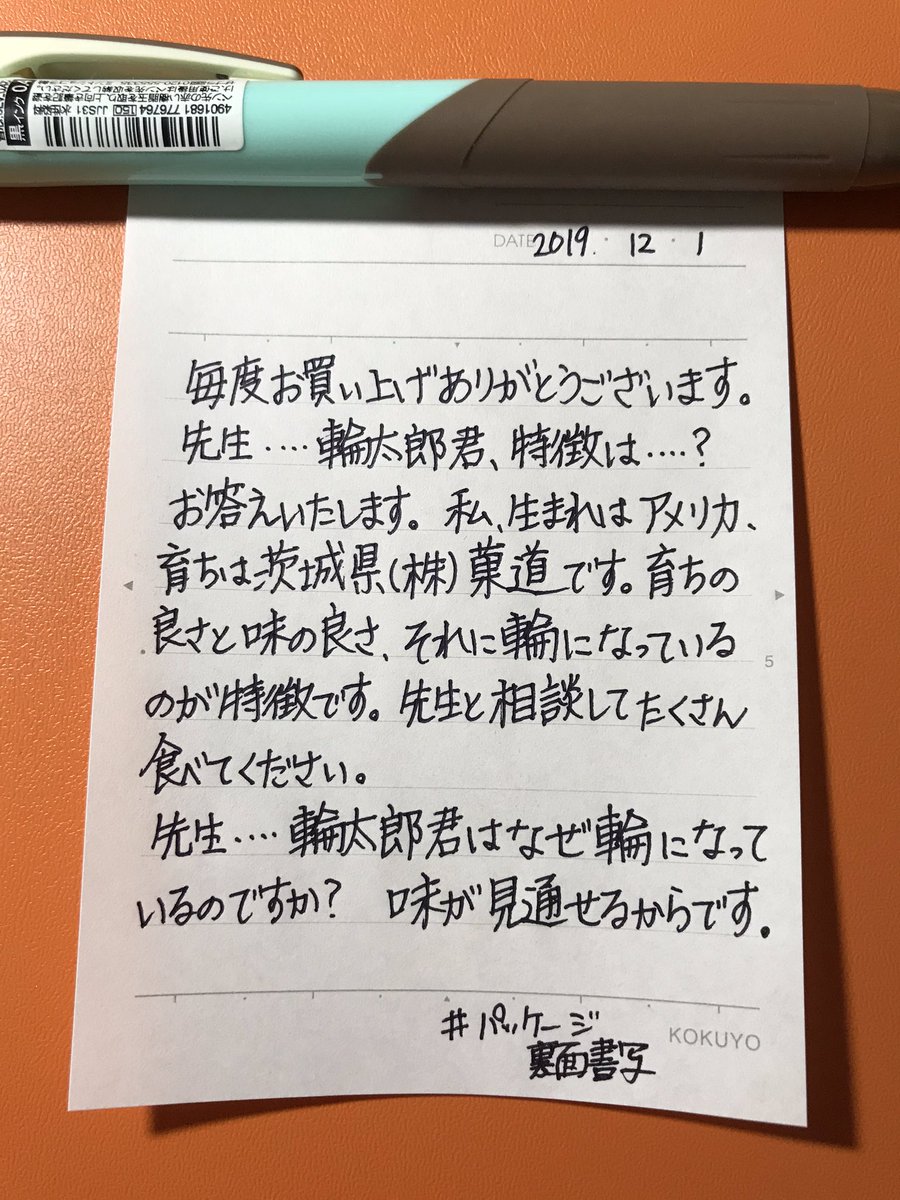 4901681 776764 150 JJS31
黒インク
DATE 2019. 12 . 1
毎度お買い上げありがとうございます。
先生‥‥輪太郎君、特徴は‥‥?
お答えいたします。私、生まれはアメリカ、
育ちは茨城県(株)菓道です。育ちの
良さと味の良さ、それに輪になっている
のが特徴です。先生と相談してたくさん
食べてください。
先生‥‥輪太郎君はなぜ輪になって
いるのですか? 味が見通せるからです。
5
#パッケージ
裏面書写
KOKUYO